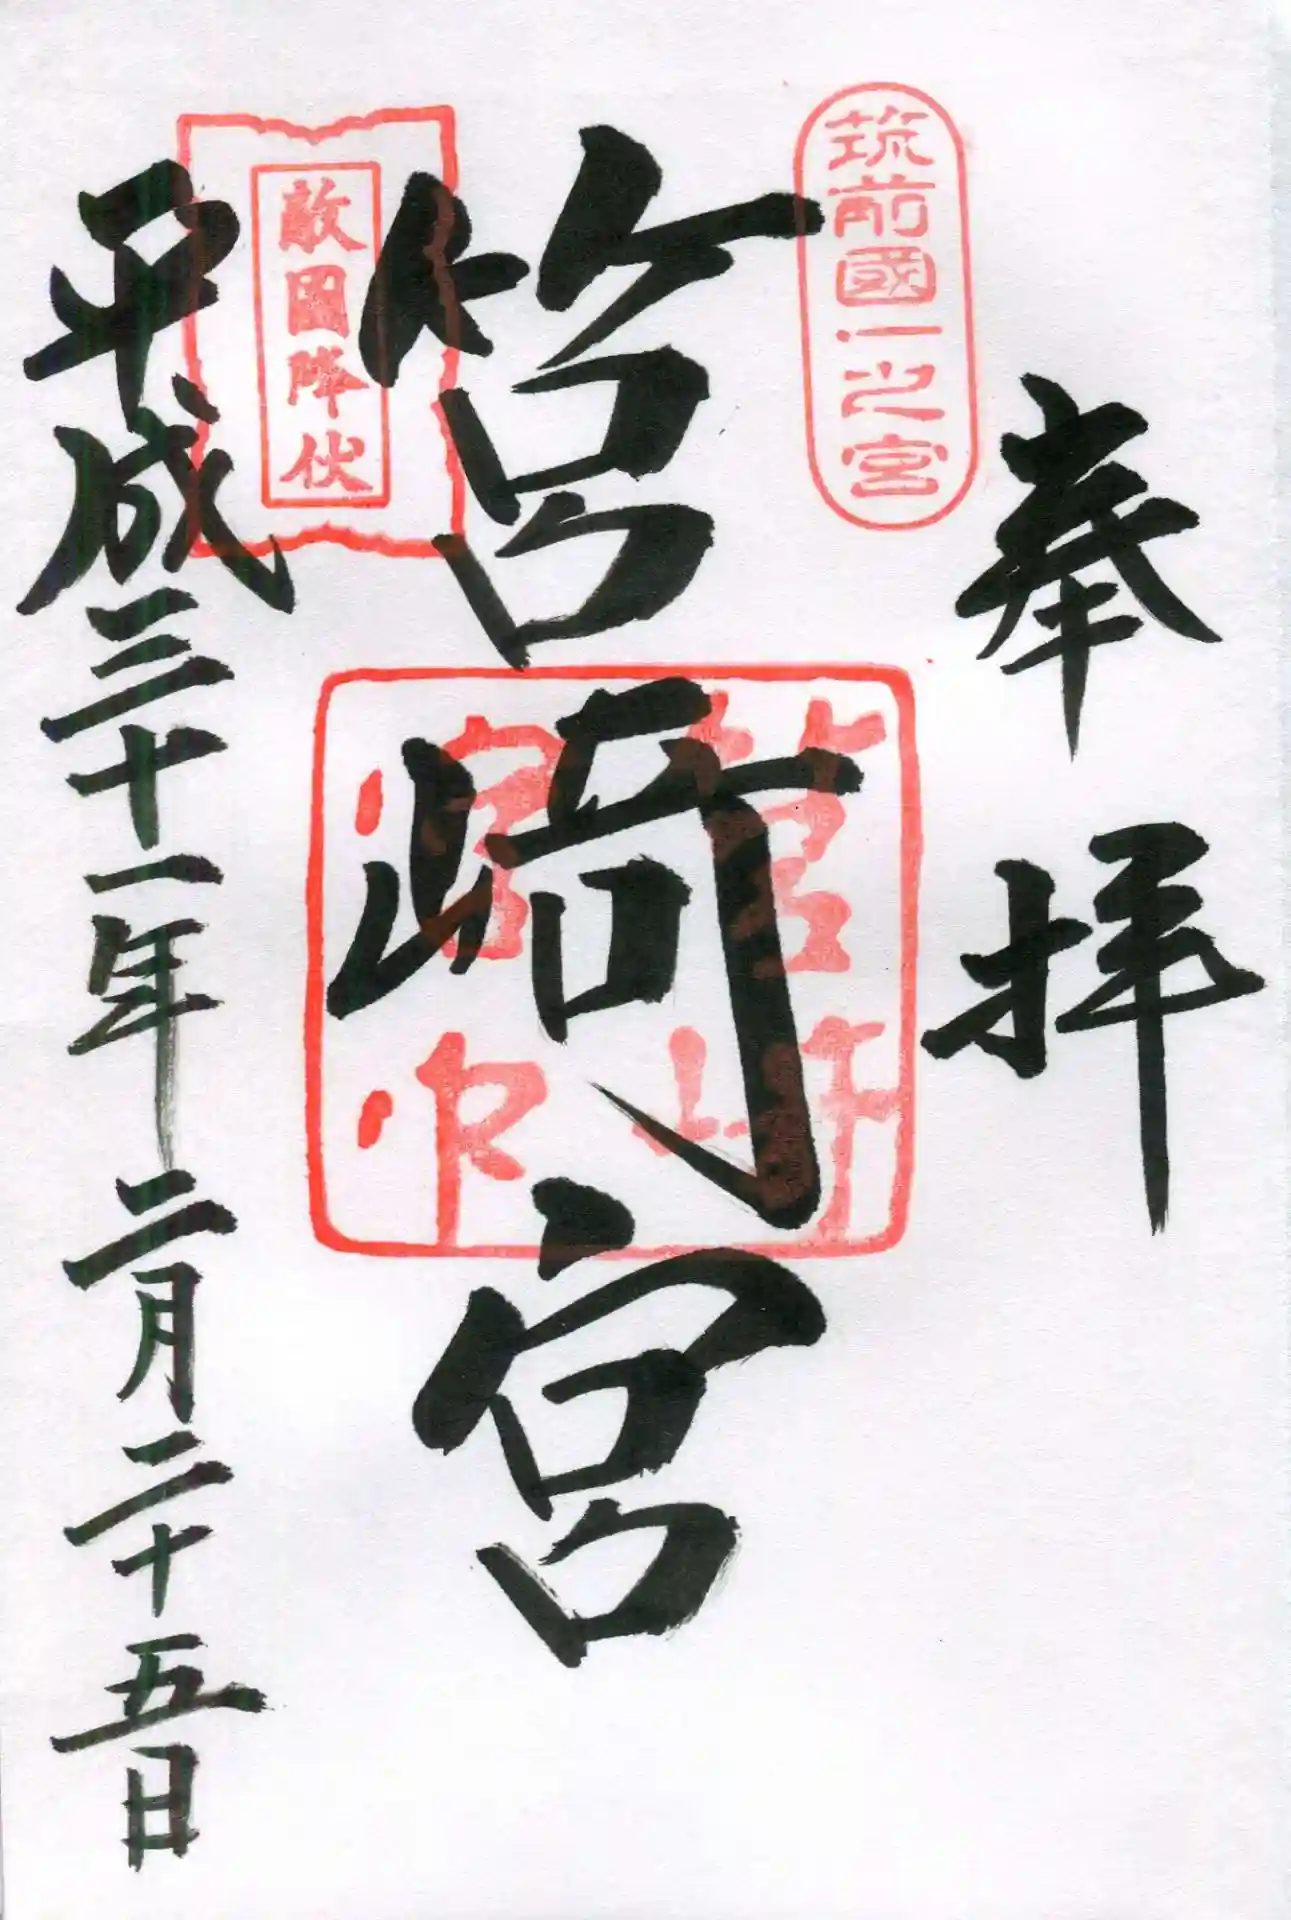 奉拝
筑前國一之宮
筥崎宮
筥崎宮印
敵國降伏
平成三十一年二月二十五日